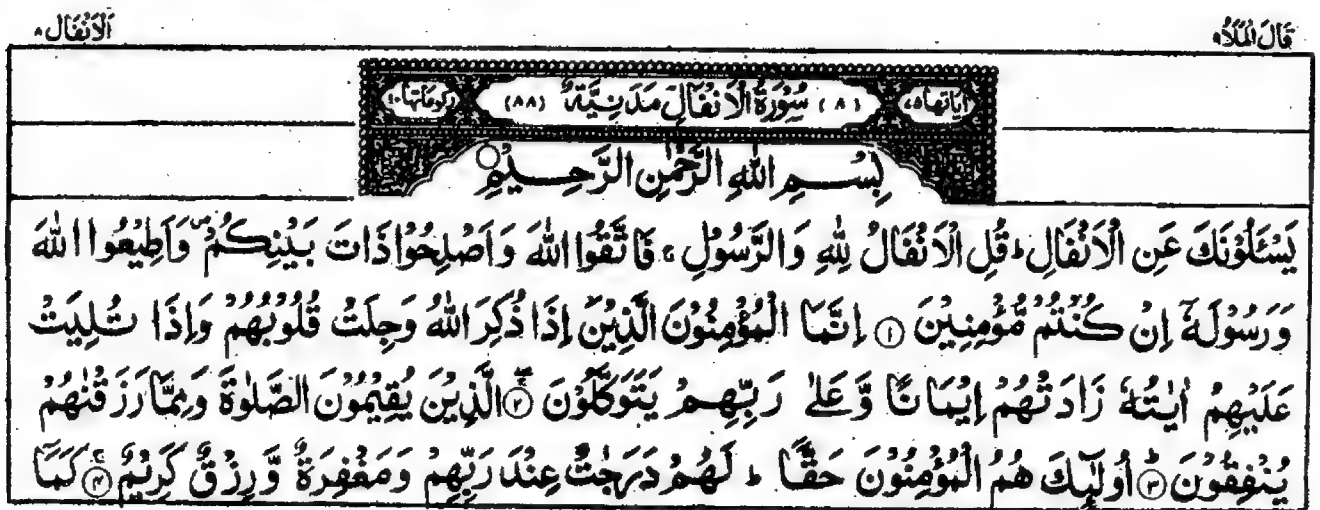 قَالَ الْمَلَاُ ٩
اَلْاَنْفَال ٨
اٰيَاتُهَا ٧٥
(٨) سُوْرَةُ الْاَنْفَالِ مَدَنِيَّةٌ (٨٨)
رُكُوْعَاتُهَا ١٠
بِسْمِ اللّٰهِ الرَّحْمٰنِ الرَّحِيْمِ
يَسْـَٔلُوْنَكَ عَنِ الْاَنْفَالِ ؕ قُلِ الْاَنْفَالُ لِلّٰهِ وَالرَّسُوْلِ ۚ فَاتَّقُوا اللّٰهَ وَاَصْلِحُوْا ذَاتَ بَيْنِكُمْ ۪ وَاَطِيْعُوا اللّٰهَ
وَرَسُوْلَهٗٓ اِنْ كُنْتُمْ مُّؤْمِنِيْنَ ۝۱ اِنَّمَا الْمُؤْمِنُوْنَ الَّذِيْنَ اِذَا ذُكِرَ اللّٰهُ وَجِلَتْ قُلُوْبُهُمْ وَاِذَا تُلِيَتْ
عَلَيْهِمْ اٰيٰتُهٗ زَادَتْهُمْ اِيْمَانًا وَّعَلٰى رَبِّهِمْ يَتَوَكَّلُوْنَ ۝۲ الَّذِيْنَ يُقِيْمُوْنَ الصَّلٰوةَ وَمِمَّا رَزَقْنٰهُمْ
يُنْفِقُوْنَ ۝۳ اُولٰٓئِكَ هُمُ الْمُؤْمِنُوْنَ حَقًّا ؕ لَهُمْ دَرَجٰتٌ عِنْدَ رَبِّهِمْ وَمَغْفِرَةٌ وَّرِزْقٌ كَرِيْمٌ ۝۴ كَمَآ